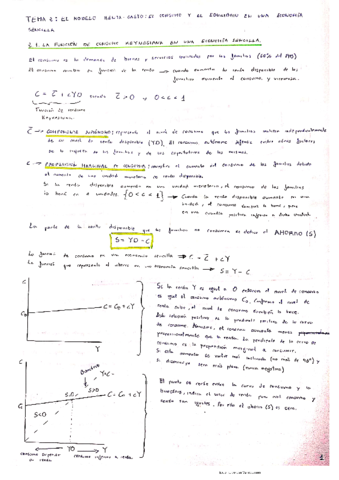 TEMA 2: EL MODELO RENTA-GASTO: EL CONSUMO Y EL EQUILIBRIO EN UNA ECONOMÍA
SENCILLA
2.1. LA FUNCIÓN DE CONSUMO KEYNESIANA EN UNA ECONOMÍA SENCILLA.
El consumo es la demanda de bienes y servicios por las familias (60% del PIB)
El consumo en función de la renta → Cuando aumenta la renta disponible de las
familias aumenta el consumo y viceversa.
C = C̄ + cYD donde C̄ > 0 y 0 < c < 1
Función de consumo
Keynesiana
C̄ → CONSUMO AUTÓNOMO: representa el nivel de consumo que las familias realizan independientemente
de su nivel de renta disponible (YD). El consumo autónomo depende entre otros factores
de la riqueza de las familias y de sus expectativas de las mismas.
c → PROPENSIÓN MARGINAL AL CONSUMO: el aumento del consumo de las familias debido
al aumento de una unidad monetaria la renta disponible.
Si la renta disponible aumenta en una unidad monetaria, el consumo de las familias
lo hará en c unidades [0 < c < 1] → Cuando la renta disponible aumenta en una
unidad el consumo también lo hará, pero
en una cuantía positiva inferior a dicha unidad.
La parte de la renta disponible que las familias no consumen se define el AHORRO (S)
S = YD - C
La función de consumo en una economía sencilla → C = C̄ + cY
La función que representa el ahorro en una economía sencilla → S = Y - C
C
C₀
C = C₀ + cY
Y
Si la renta Y es igual a 0 entonces el nivel de consumo
es igual al consumo autónomo C₀. Conforme el nivel de
renta sube, el nivel de consumo también lo hace.
Esta relación positiva es la pendiente positiva de la curva
de consumo. el consumo aumenta menos
proporcionalmente que la renta. La pendiente de la curva de
consumo es la propensión marginal a consumir.
Si esta aumenta se vuelve más inclinada (no más de 45°) y
si disminuye será más plana (nunca negativa)
C
Y=C
S>0
S=0
C = C₀ + cY
S<0
C₀
YD
Y
consumo superior
a renta
consumo inferior a renta
El punto de corte entre la curva de consumo y la
bisectriz, indica el valor de renta para el consumo y
renta son iguales, por ello el ahorro (S) es cero.
1